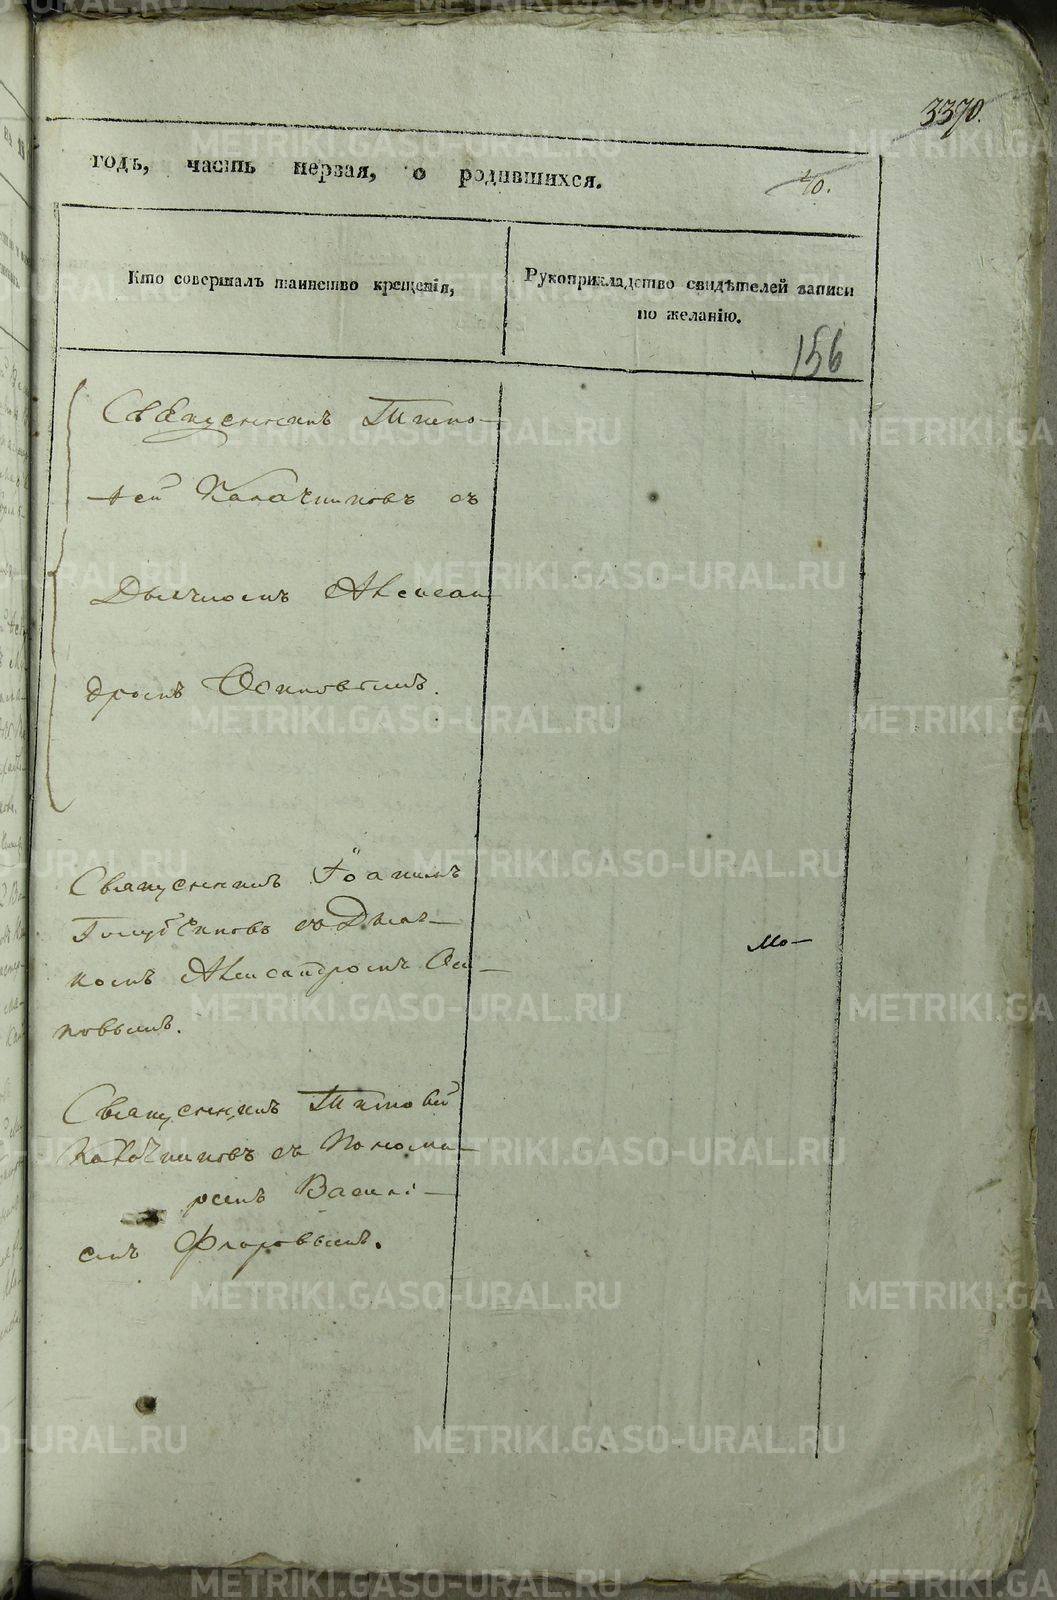 3370.
годъ, часть первая, о родившихся.
40.
Кто совершалъ таинство крещенія,
Рукоприкладство свидѣтелей записи
по желанію.
156
Священникъ Тимо-
ѳей Калачниковъ съ
Дьячкомъ Алексан
дромъ Осиповымъ.
Священникъ Іоаннъ
Голубчиковъ съ Дьяч-
комъ Александромъ Оси-
повымъ.
Мо-
Священникъ Тимоѳей
Калачниковъ съ Понома-
ремъ Васильі-
емъ Флоровымъ.
METRIKI.GASO-URAL.RU